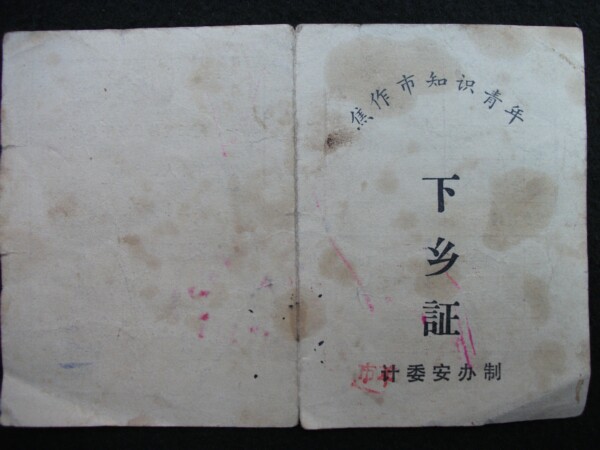 焦作市知识青年
下乡証
市计委安办制